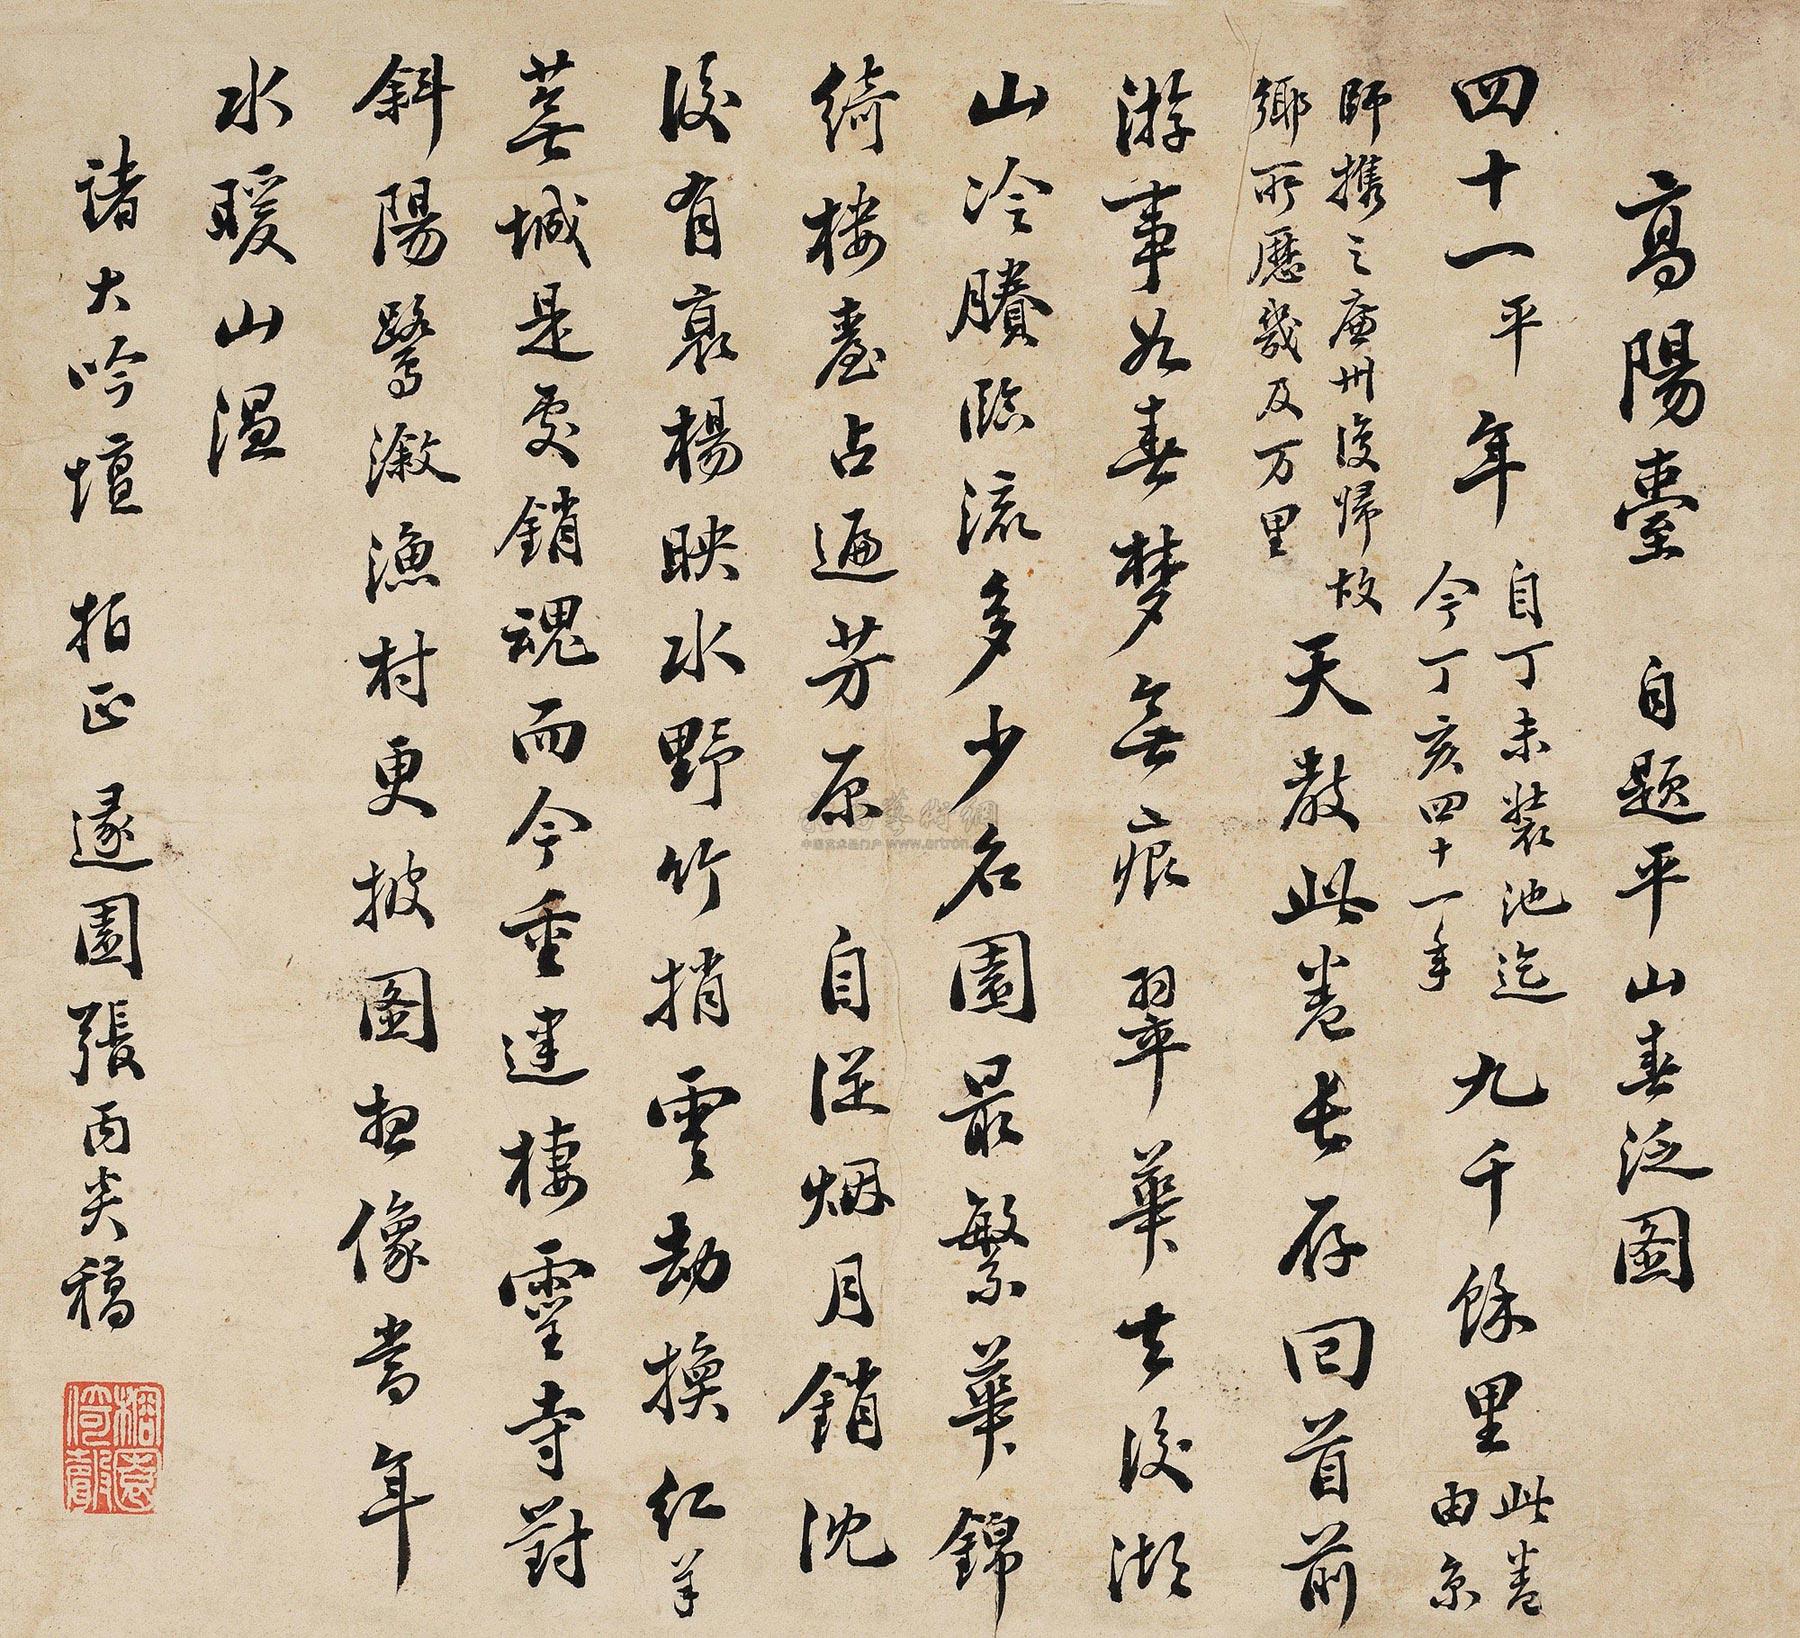 高陽臺　自題平山春泛圖
四十一平年自丁未裝池迄今丁亥四十一年九千餘里此卷由京
師攜之廉州後歸故鄉所歷幾及万里天教此卷長存回首前
游事如春梦無痕翠華去後湖
山冷賸臨流多少名園最繁華錦
綺樓臺占遍芳原　自從烟月銷沈
後有衰楊映水野竹捎雲劫換紅羊
蕪城是處銷魂而今重建棲靈寺對
斜陽鷺漵漁村更披圖想像當年
水暖山温
諸大吟壇　拍正　遂園張丙炎稿
www.artron